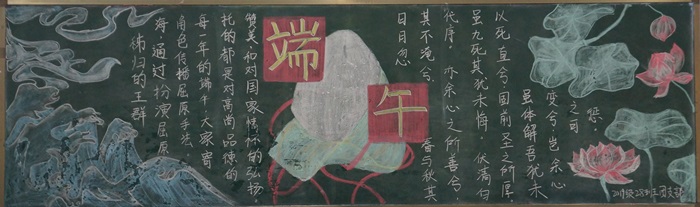 惩。
之可
变兮岂余心
虽体解吾犹未
以死直兮固前圣之所厚
虽九死其犹未悔，伏清白
代序，亦余心之所善兮，
其不淹兮，
春与秋其
日月忽
端
午
赞美，和对国家情怀的弘扬，
托的都是对高尚品德的
每一年的端午，大家寄
角色传播屈原手法，
海，通过扮演屈原
秭归的王群